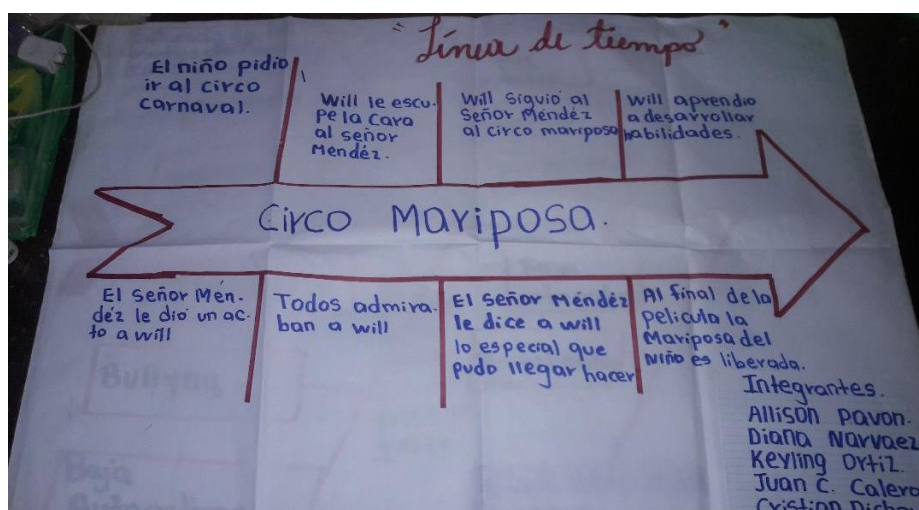 "Línea de tiempo"
El niño pidio
ir al circo
carnaval.
Will le escu.
pe la cara
al señor
Mendéz.
Will siguió al
Señor Mendéz
al circo mariposa
Will aprendio
a desarrollar
habilidades.
Circo Mariposa.
El señor Mén.
déz le dió un ac.
to a will
Todos admira.
ban a will
El señor Méndéz
le dice a will
lo especial que
pudo llegar hacer
Al final de la
pelicula la
Mariposa del
niño es liberada.
Integrantes.
Allison pavon.
Diana Narvaez
Keyling Ortiz.
Juan C. Calero
Cristian
Bullyng
Baja